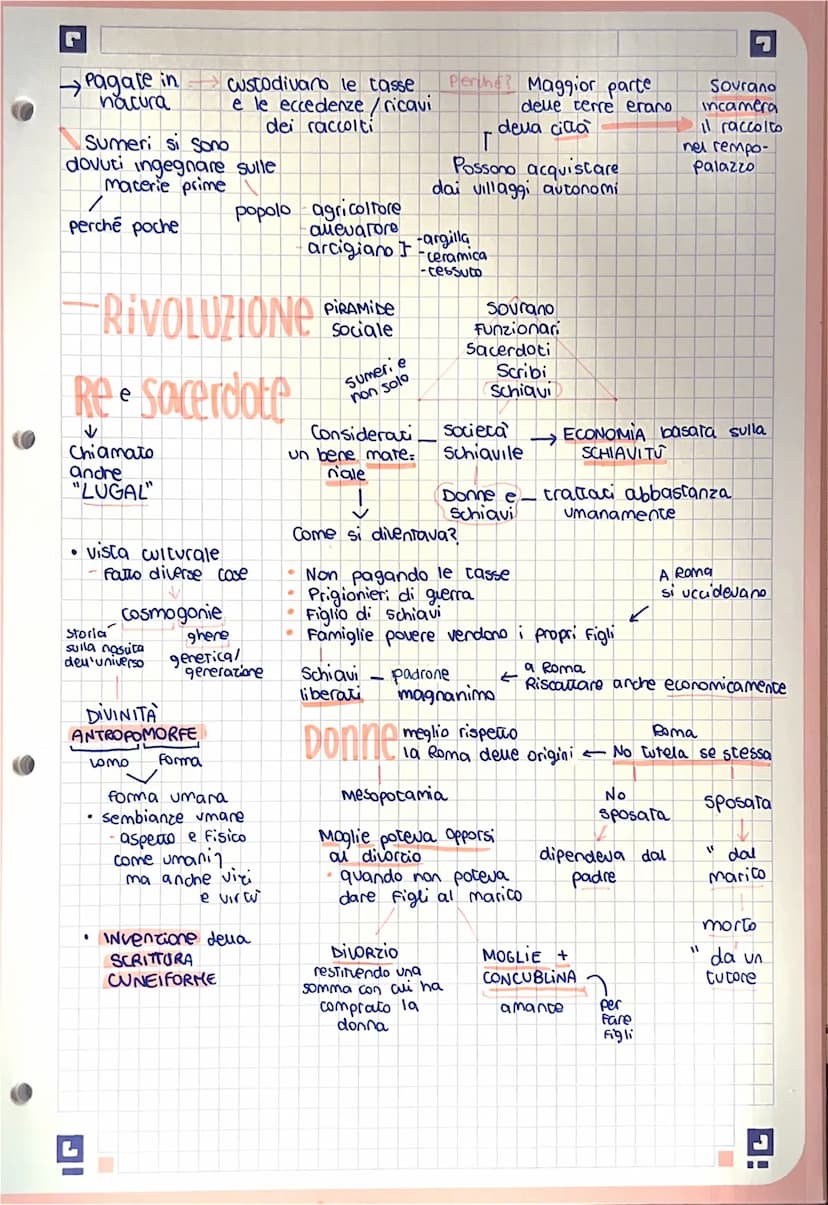 → Pagate in → custodivano le tasse Perché? Maggior parte Sovrano
natura e le eccedenze / ricavi delle terre erano incamera
dei raccolti della città → il raccolto
nel tempo-
palazzo
Possono acquistare
dai villaggi autonomi
Sumeri si sono
dovuti ingegnare sulle
materie prime
perché poche
popolo - agricoltore
- allevatore
- artigiano
- argilla
- ceramica
- tessuto
- RIVOLUZIONE
PIRAMIDE
sociale
Sovrano
Funzionari
Sacerdoti
Scribi
Schiavi
sumeri e
non solo
RE e sacerdote
↓
Chiamato
anche
"LUGAL"
Considerati
un bene mate=
riale
società
schiavile
→ ECONOMIA basata sulla
SCHIAVITÙ
Donne e - trattati abbastanza
schiavi umanamente
↓
Come si diventava?
• Non pagando le tasse
• Prigionieri di guerra
• Figlio di schiavi
• Famiglie povere vendono i propri figli
A Roma
si uccidevano
Schiavi - padrone
liberati magnanimo
← a Roma
Riscattare anche economicamente
• vista culturale
- Fatto diverse cose
↓
cosmogonie
storia
sulla nascita
dell'universo
ghene
generica/
generazione
DIVINITÀ
ANTROPOMORFE
uomo forma
forma umana
• sembianze umane
- aspetto e fisico
come umani
ma anche vizi
e virtù
• INVENZIONE della
SCRITTURA
CUNEIFORME
DONNE meglio rispetto
la Roma delle origini ←
Roma
No tutela se stessa
Mesopotamia
Moglie poteva opporsi
al divorzio
• quando non poteva
dare figli al marito
DIVORZIO
restituendo una
somma con cui ha
comprato la
donna
MOGLIE +
CONCUBLINA
amante
per
fare
figli
No
sposata
dipendeva dal
padre
sposata
" dal
marito
morto
" da un
tutore